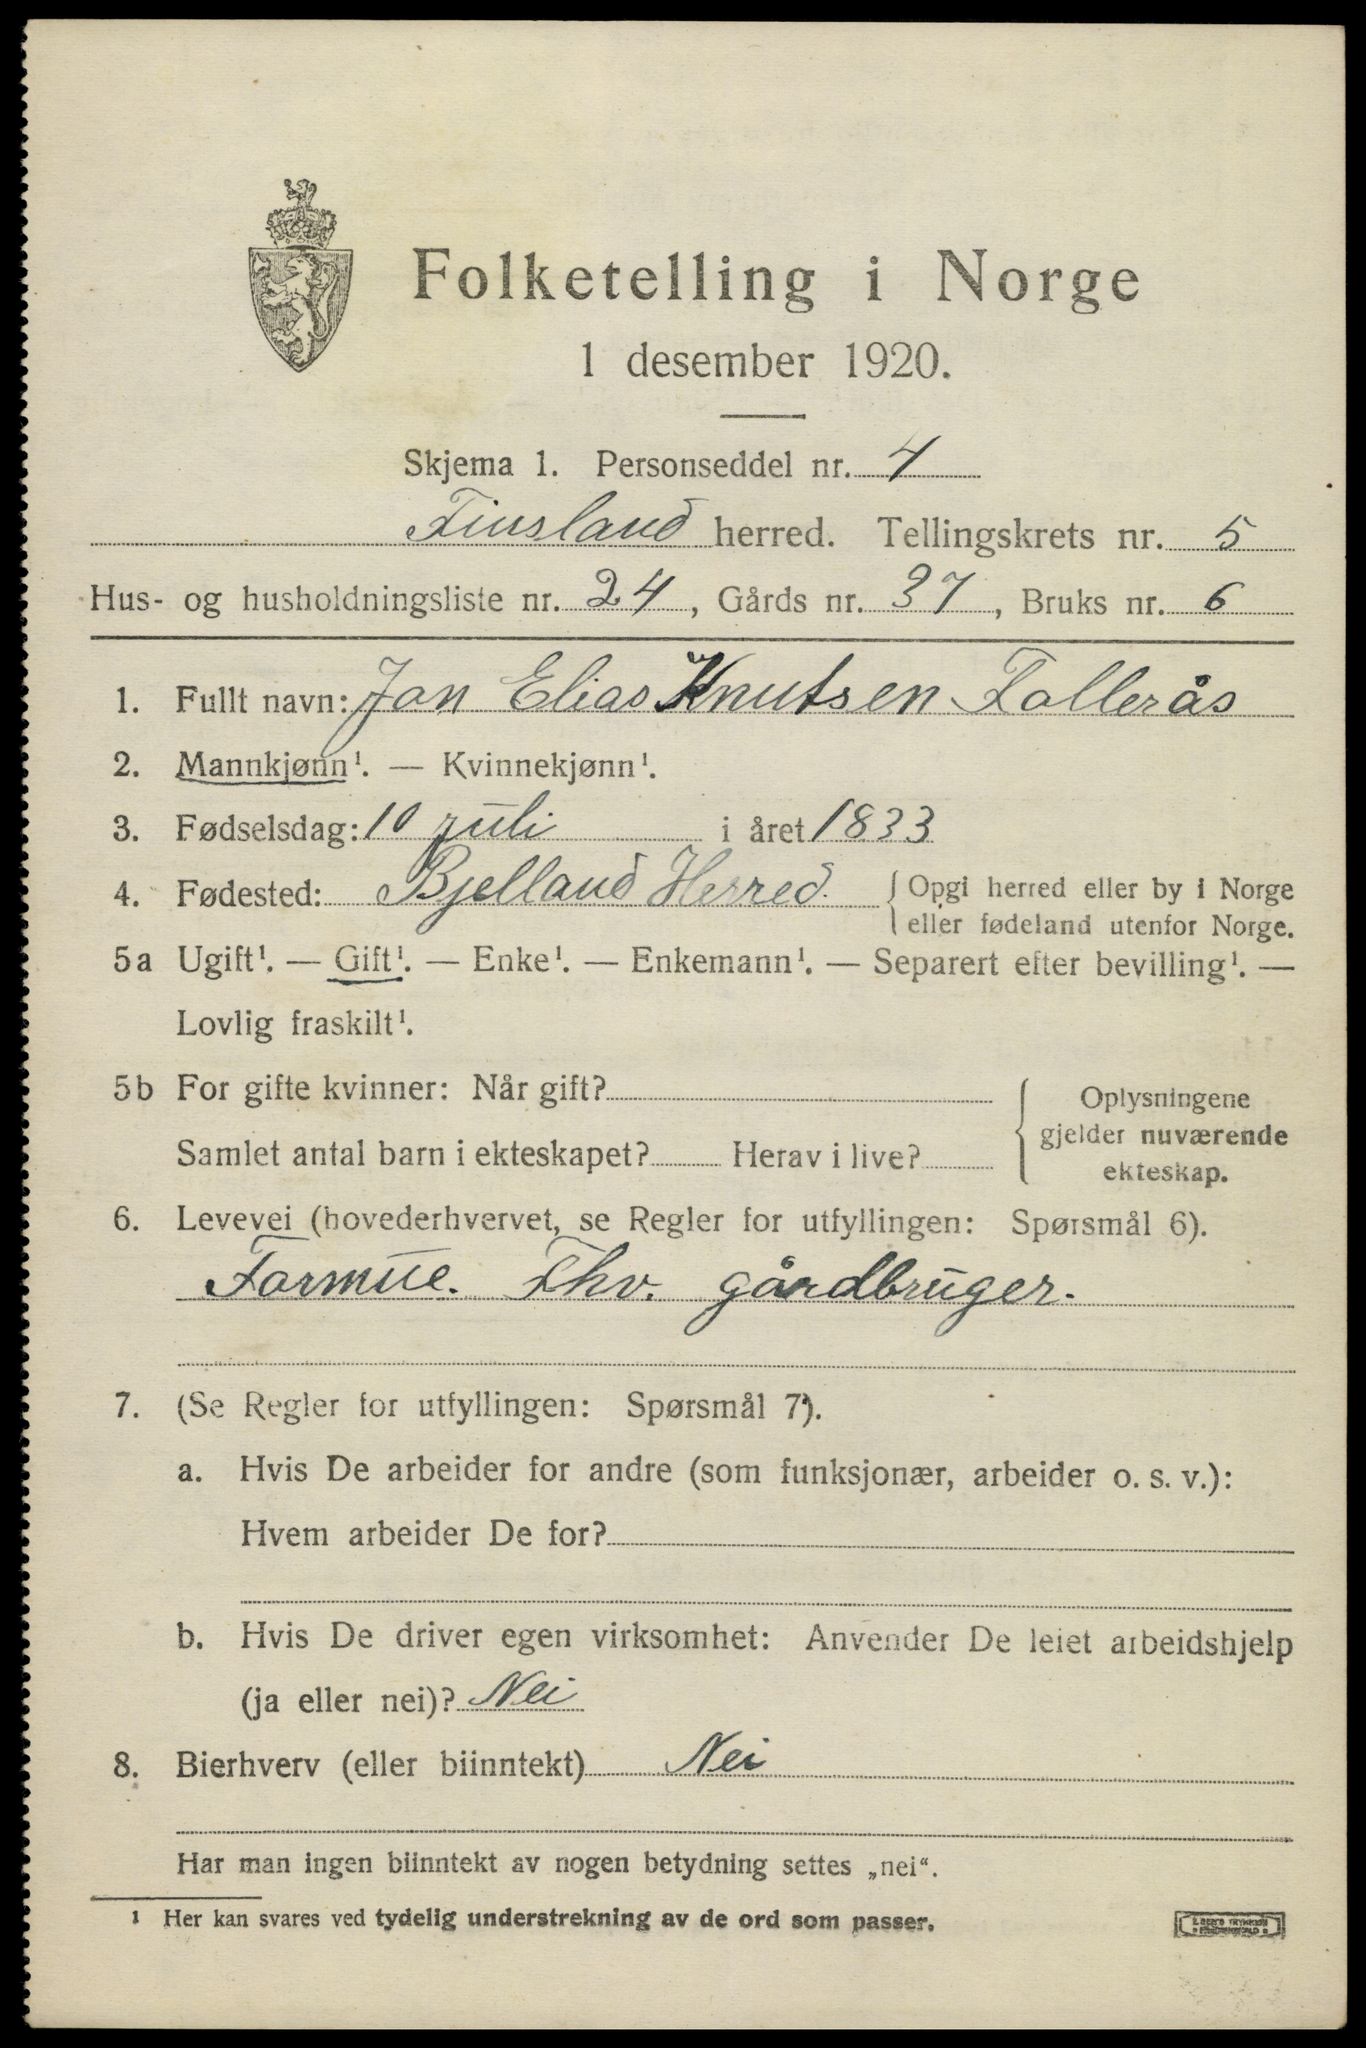 Folketelling i Norge
1 desember 1920.
Skjema 1. Personseddel nr. 4
Finsland herred. Tellingskrets nr. 5
Hus- og husholdningsliste nr. 24, Gårds nr. 37, Bruks nr. 6
1. Fullt navn: Jon Elias Knutsen Follerås
2. Mannkjønn¹. — Kvinnekjønn¹.
3. Fødselsdag: 10 juli i året 1833
4. Fødested: Bjelland Herred. { Opgi herred eller by i Norge
eller fødeland utenfor Norge.
5a Ugift¹. — Gift¹. — Enke¹. — Enkemann¹. — Separert efter bevilling¹. —
Lovlig fraskilt¹.
5b For gifte kvinner: Når gift?
Samlet antal barn i ekteskapet? Herav i live?
{ Oplysningene
gjelder nuværende
ekteskap.
6. Levevei (hovederhvervet, se Regler for utfyllingen: Spørsmål 6).
Formue. Fhv. gårdbruger.
7. (Se Regler for utfyllingen: Spørsmål 7).
a. Hvis De arbeider for andre (som funksjonær, arbeider o. s. v.):
Hvem arbeider De for?
b. Hvis De driver egen virksomhet: Anvender De leiet arbeidshjelp
(ja eller nei)? Nei
8. Bierhverv (eller biinntekt) Nei
Har man ingen biinntekt av nogen betydning settes „nei“.
1 Her kan svares ved tydelig understrekning av de ord som passer.